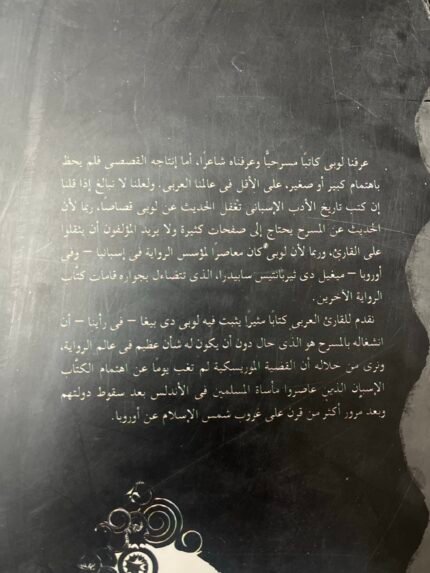 عرفنا لوبى كاتبًا مسرحيًّا وعرفناه شاعرًا، أما إنتاجه القصصى فلم يحظ
باهتمام كبير أو صغير، على الأقل فى عالمنا العربى. ولعلنا لا نبالغ إذا قلنا
إن كتب تاريخ الأدب الإسبانى تغفل الحديث عن لوبى قصاصًا، ربما لأن
الحديث عن المسرح يحتاج إلى صفحات كثيرة ولا يريد المؤلفون أن يثقلوا
على القارئ، وربما لأن لوبى كان معاصرًا لمؤسس الرواية فى إسبانيا – وفى
أوروبا – ميغيل دى ثيربانتيس سابيدرا، الذى تتضاءل بجواره قامات كتّاب
الرواية الآخرين.
نقدم للقارئ العربى كتابًا مثيرًا يثبت فيه لوبى دى بيغا – فى رأينا – أن
انشغاله بالمسرح هو الذى حال دون أن يكون له شأن عظيم فى عالم الرواية،
ونرى من خلاله أن القضية الموريسكية لم تغب يومًا عن اهتمام الكتّاب
الإسبان الذين عاصروا مأساة المسلمين فى الأندلس بعد سقوط دولتهم
وبعد مرور أكثر من قرن على غروب شمس الإسلام عن أوروبا.